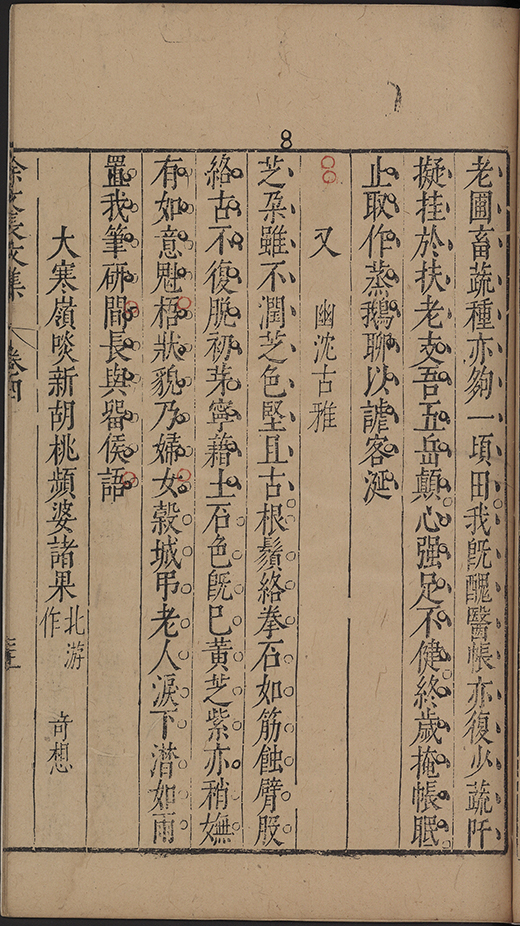 8
老圃畜蔬種亦夠一頃田我旣醜醫帳亦復少蔬阡
擬挂於扶老支吾五岳顛心强足不健終歲掩帳眠
止取作蒸鵝聊以謔客涎
又 幽沈古雅
芝朶雖不潤芝色堅且古根鬚絡拳石如筋蝕臂股
絡古不復脫初芽寧藉土石色旣已黃芝紫亦稍嫵
有如意魁梧狀貌乃婦女榖城弔老人淚下潛如雨
置我筆硏間長與畱侯語
大寒嶺啖新胡桃頻婆諸果 北游作 奇想
徐文長文集 卷四